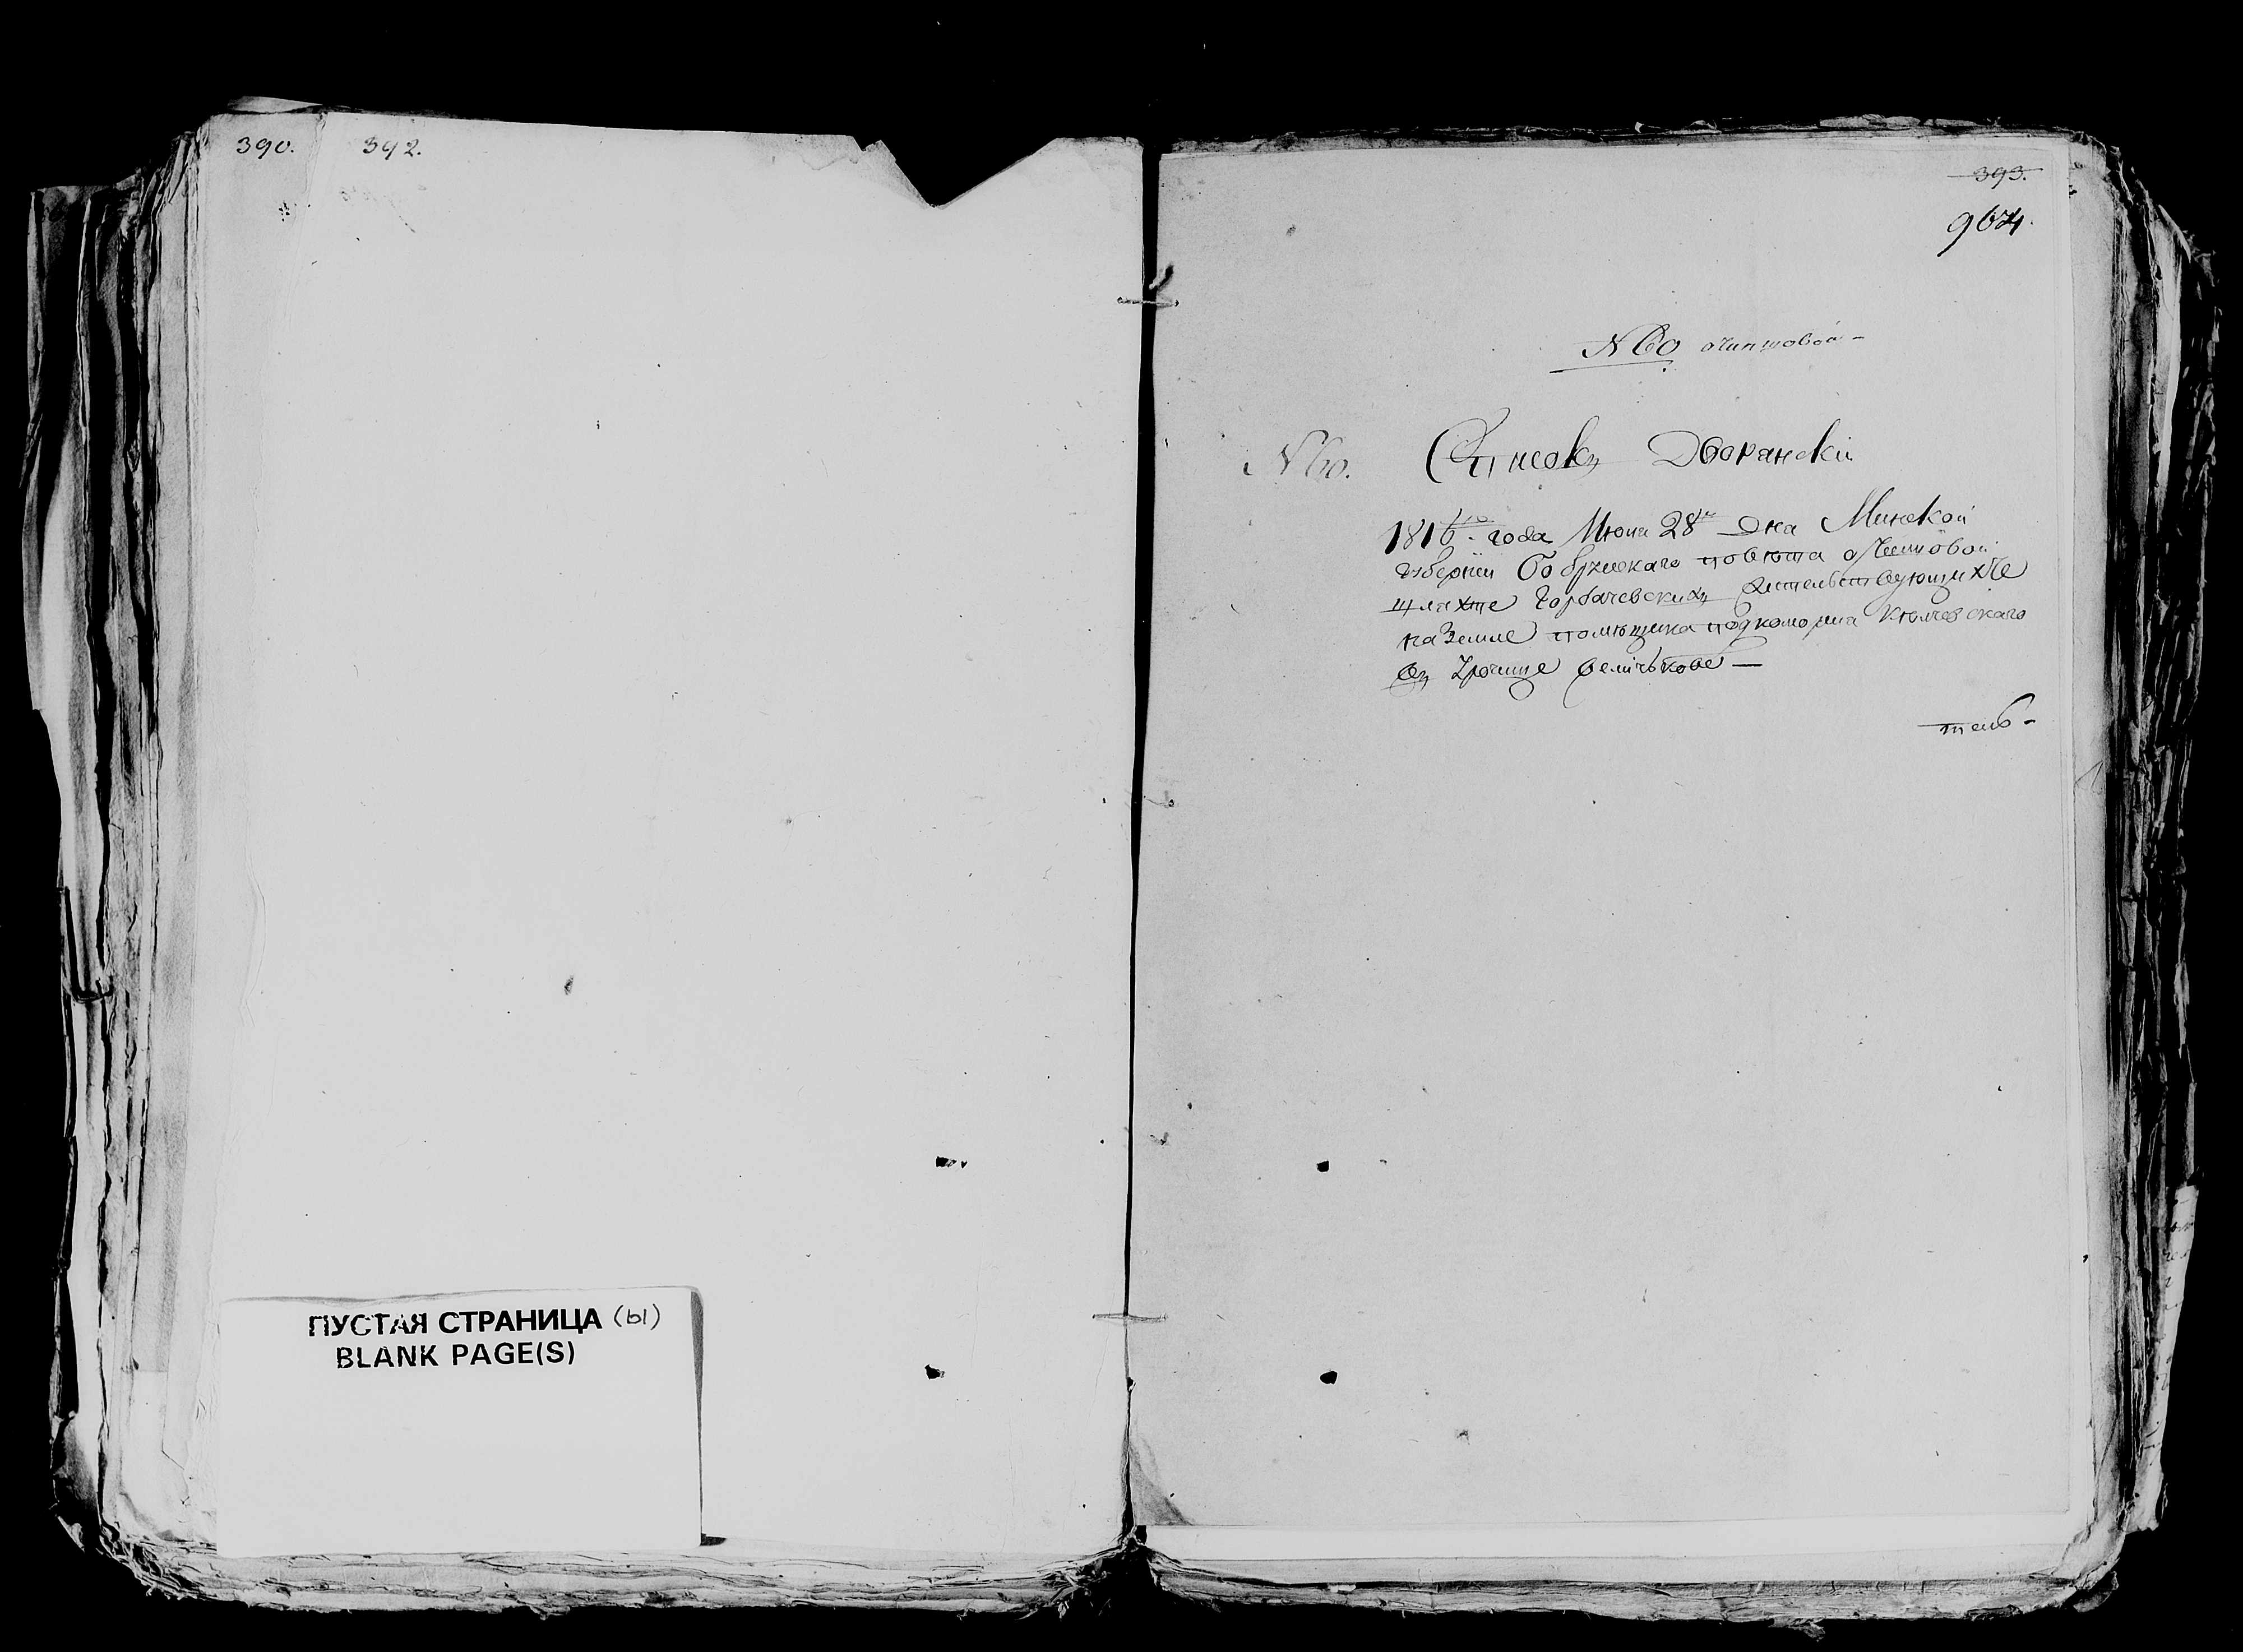 390. 392.
ПУСТАЯ СТРАНИЦА (ы)
BLANK PAGE(S)
393.
964.
N 60 очиншовой -
N 60. Списокъ Дворанскiй
1816го года Июня 28го Дня Минской
губернiи Бобруйскаго повѣта очиншовой
шляхте Горбачевскихъ жительствующихже
на Земле помѣщика подкомория
въ Урочище величькове —